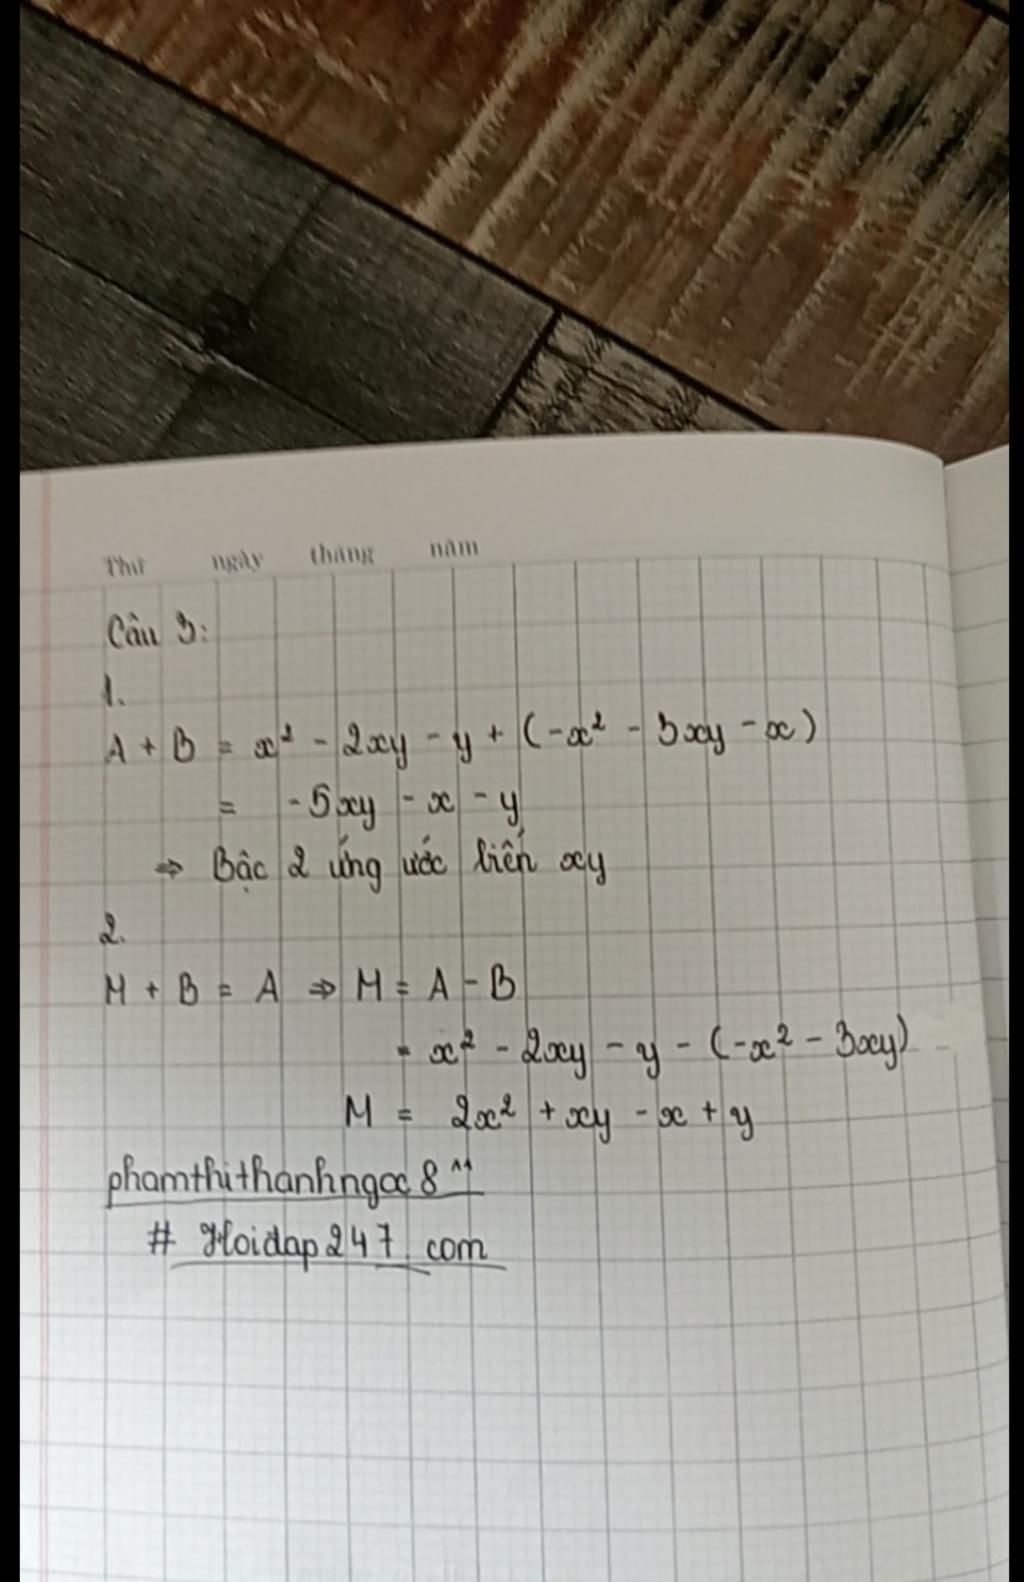 Thứ ngày tháng năm
Câu 3:
1.
A + B = x² - 2xy - y + (-x² - 3xy - x)
= -5xy - x - y
⇒ Bậc 2 ứng ước liến xy
2.
M + B = A ⇒ M = A - B
= x² - 2xy - y - (-x² - 3xy)
M = 2x² + xy - x + y
phamthithanhngoc8^11
# Hoidap247.com